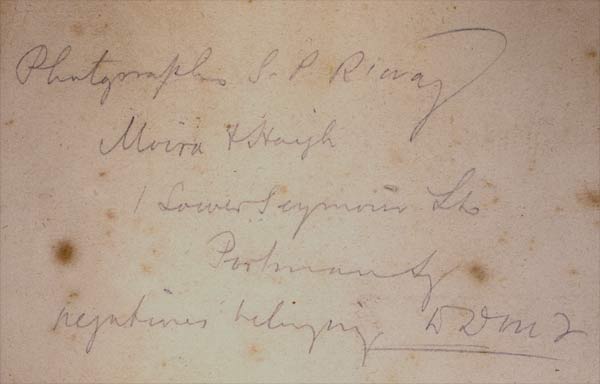 Photographs S. P.
Moira & Haigh
1 Lower Seymour St
Portman Sq
negatives belonging